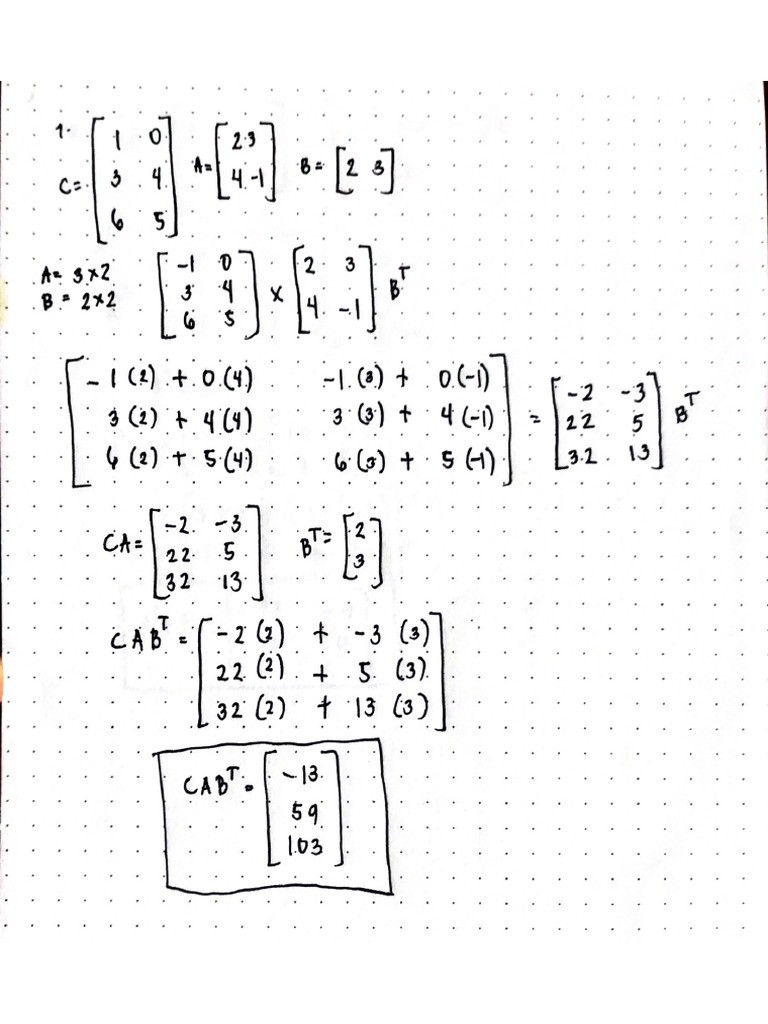 1.
C = [1 0; 3 4; 6 5] A = [2 3; 4 -1] B = [2 3]
A = 3 × 2
B = 2 × 2
[-1 0; 3 4; 6 5] × [2 3; 4 -1] B^T
[-1(2) + 0(4) -1(3) + 0(-1); 3(2) + 4(4) 3(3) + 4(-1); 6(2) + 5(4) 6(3) + 5(-1)] = [-2 -3; 22 5; 32 13] B^T
CA = [-2 -3; 22 5; 32 13] B^T = [2; 3]
CAB^T = [-2(2) + -3(3); 22(2) + 5(3); 32(2) + 13(3)]
CAB^T = [-13; 59; 103]